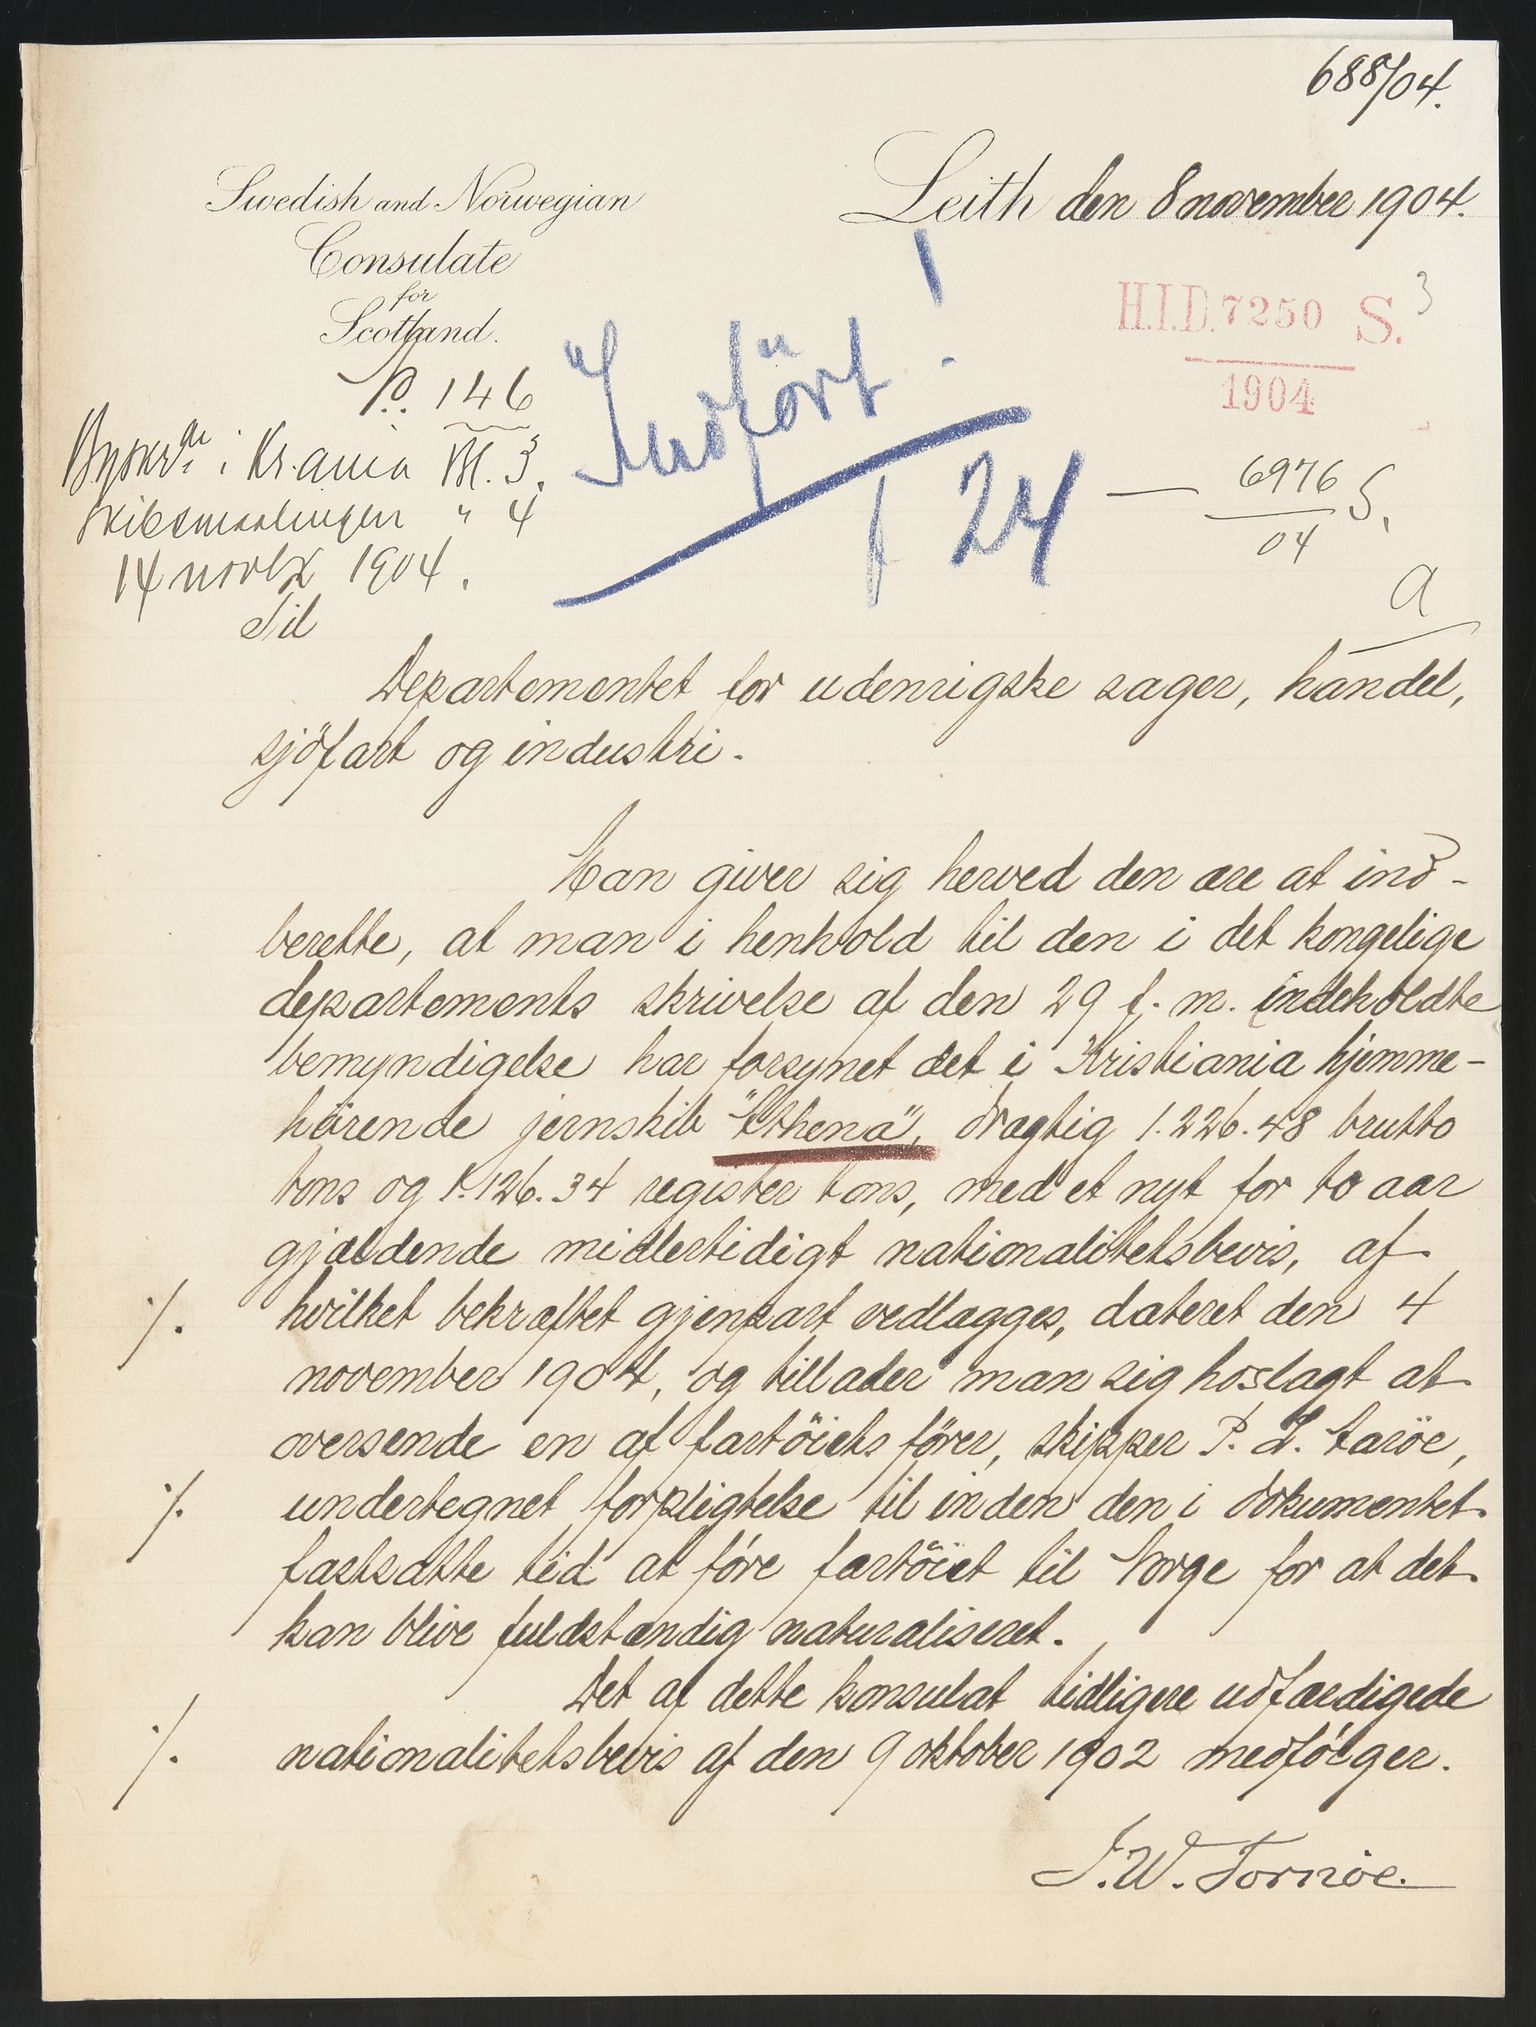 688/04.
Swedish and Norwegian
Consulate
for
Scotland.
No. 146
Leith den 8 november 1904.
H.I.D. 7250 S. 3
1904
Indført!
f 24
— 6976 S.
04
a
i Kr.ania Bl. 3.
Skibsmaalingen " 4
14 novbr 1904.
Til
Departementet for udenrigske sager, handel,
sjöfart og industri.
Man giver sig herved den ære at ind-
berette, at man i henhold til den i det kongelige
departements skrivelse af den 29 f. m. indeholdte
bemyndigelse har forsynet det i Kristiania hjemme-
hörende jernskib "Athena", drægtig 1.226.48 brutto
tons og 1.126.34 register tons, med et nyt for to aar
gjældende midlertidigt nationalitetsbevis, af
./. hvilket bekræftet gjenpart vedlægges, dateret den 4
november 1904, og tillader man sig hoslagt at
oversende en af fartöiets förer, skipper P. L.
./. undertegnet forpligtelse til inden den i dokumentet
fastsatte tid at före fartöiet til Norge for at det
kan blive fuldstændig naturaliseret.
Det af dette konsulat tidligere udfærdigede
./. nationalitetsbevis af den 9 oktober 1902 medfölger.
J. W. Tornöe.